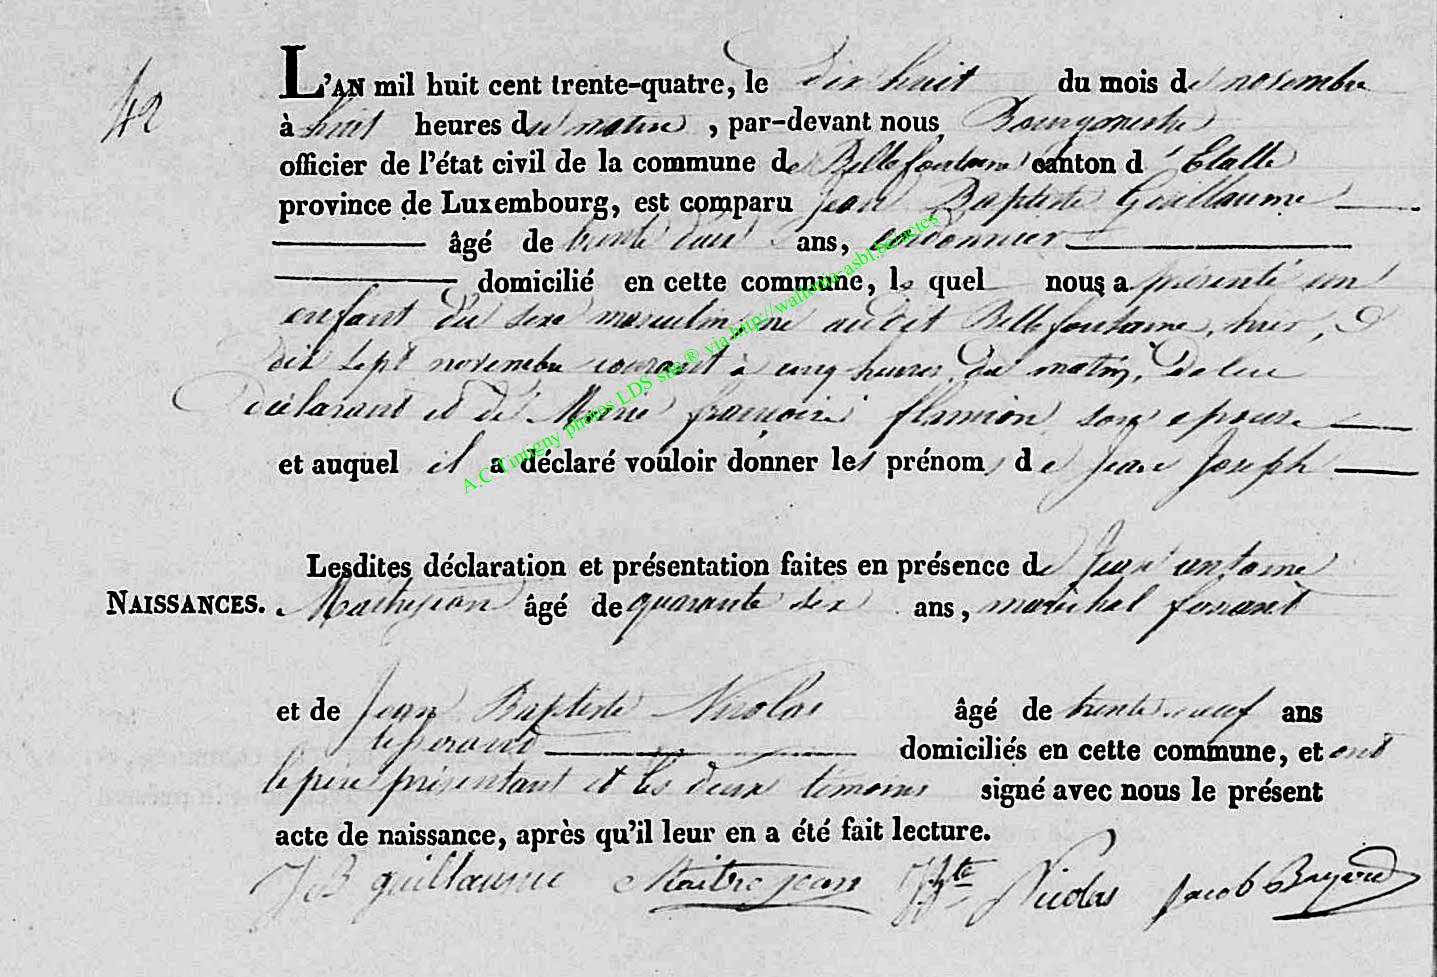 42
L'AN mil huit cent trente-quatre, le dix huit du mois de novembre
à huit heures du matin, par-devant nous, Bourgmestre
officier de l'état civil de la commune de Bellefontaine canton d'Etalle
province de Luxembourg, est comparu Jean Baptiste Guillaume
âgé de trente deux ans, cordonnier
domicilié en cette commune, le quel nous a présenté un
enfant du sexe masculin, né audit Bellefontaine, hier,
dix sept novembre courant à cinq heures du matin, de lui
déclarant et de Marie françoise flamion son epouse
et auquel il a déclaré vouloir donner les prénoms de Jean Joseph
Lesdites déclaration et présentation faites en présence de Jean antoine
NAISSANCES. Maitrejean âgé de quarante six ans, maréchal ferrant
et de Jean Baptiste Nicolas âgé de trente neuf ans
domiciliés en cette commune, et ont
le père présentant et les deux témoins signé avec nous le présent
acte de naissance, après qu'il leur en a été fait lecture.
JB guillaume Maitrejean JJte Nicolas Jacob
A.C Tintigny photos LDS site ® via http://wallonia-asbl.be/actes